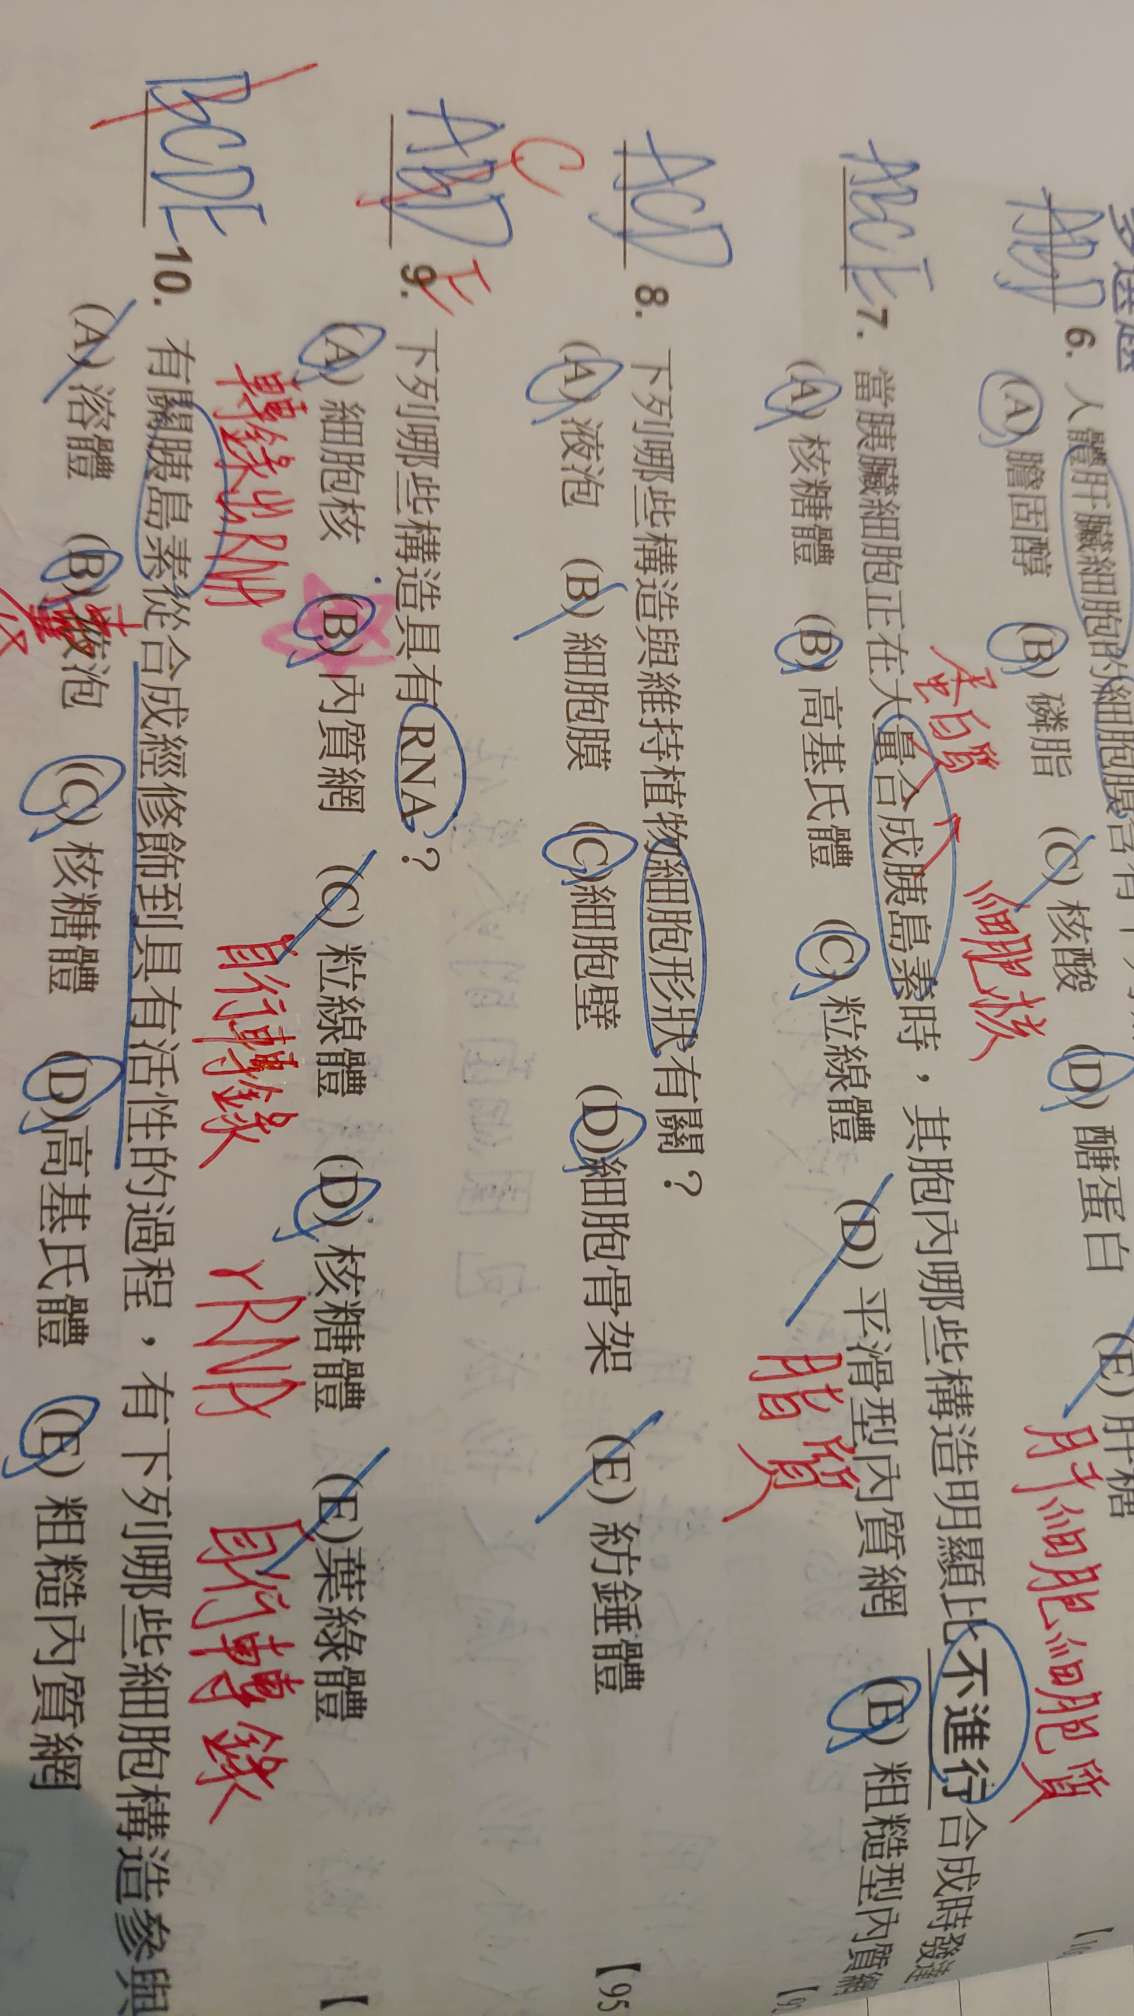 多選題
ABD 6. 人體肝臟細胞的細胞膜含有下列
(A) 膽固醇 (B) 磷脂 (C) 核酸 (D) 醣蛋白 (E) 肝糖
肝細胞細胞質
蛋白質 細胞核
ABCE 7. 當胰臟細胞正在大量合成胰島素時，其胞內哪些構造明顯比不進行合成時發達
(A) 核糖體 (B) 高基氏體 (C) 粒線體 (D) 平滑型內質網 (E) 粗糙型內質網
脂質
ACD 8. 下列哪些構造與維持植物細胞形狀有關？
(A) 液泡 (B) 細胞膜 (C) 細胞壁 (D) 細胞骨架 (E) 紡錘體
【95
ABD C E 9. 下列哪些構造具有 RNA？
(A) 細胞核 (B) 內質網 (C) 粒線體 (D) 核糖體 (E) 葉綠體
【
轉錄出RNA 自行轉錄 rRNA 自行轉錄
BCDE 10. 有關胰島素從合成經修飾到具有活性的過程，有下列哪些細胞構造參與
(A) 溶體 (B) 液泡 (C) 核糖體 (D) 高基氏體 (E) 粗糙內質網